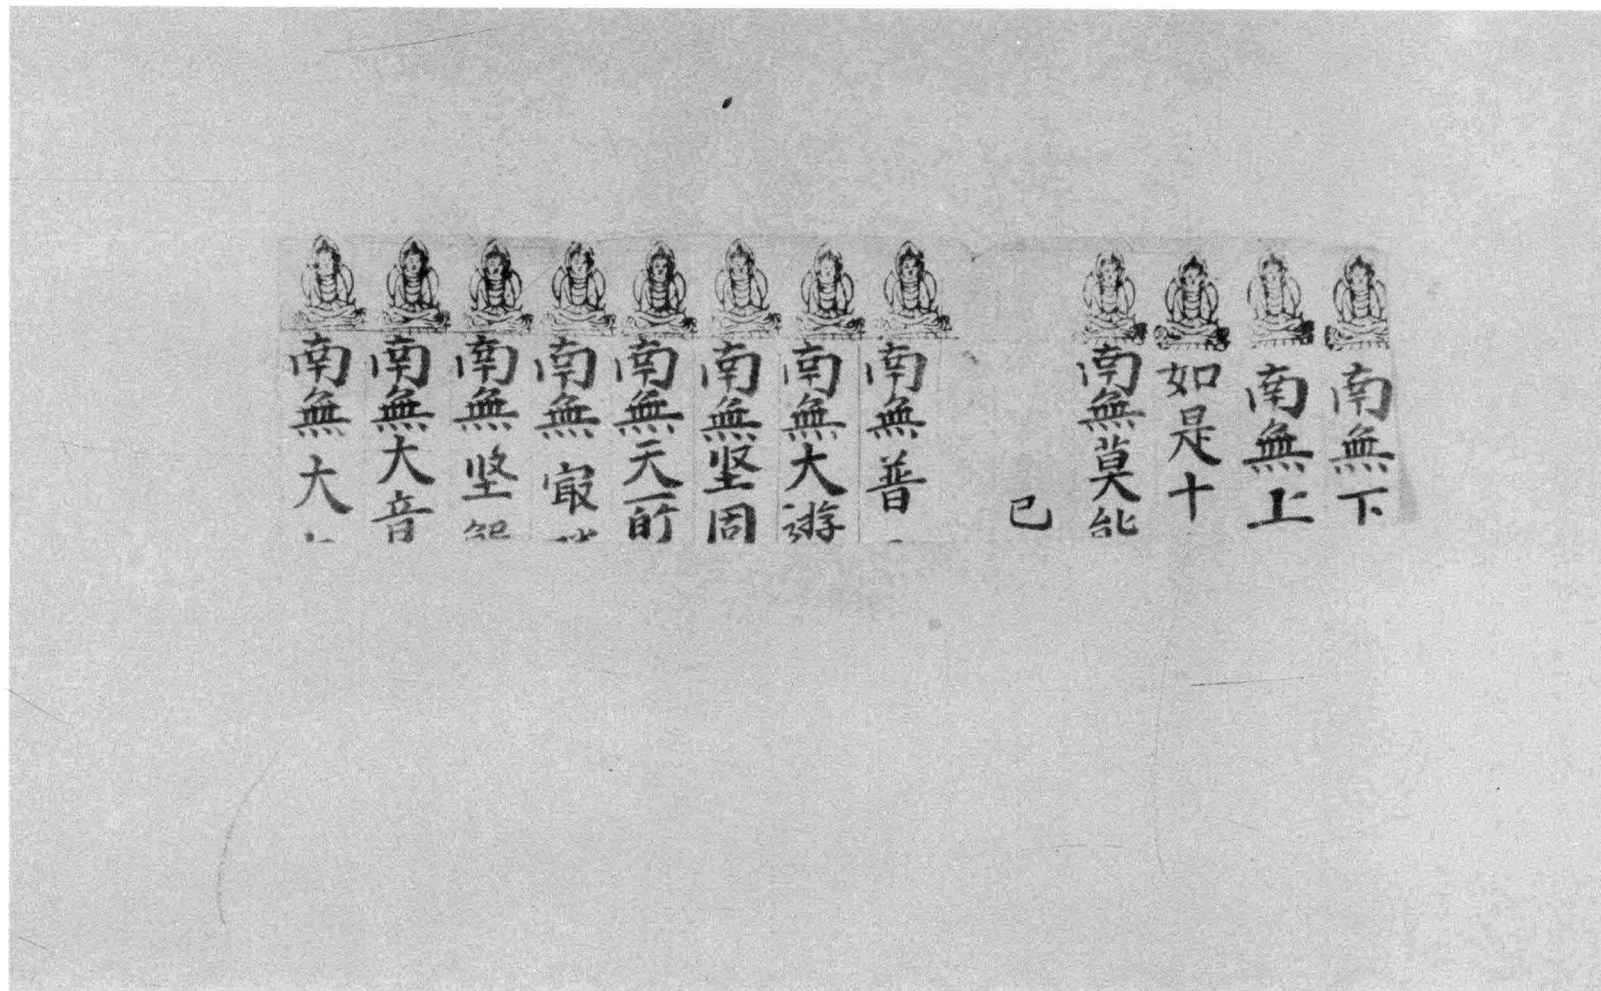 南無下
南無上
如是十
南無莫能
已
南無普
南無大遊
南無坚固
南無天
南無寂
南無坚
南無大音
南無大